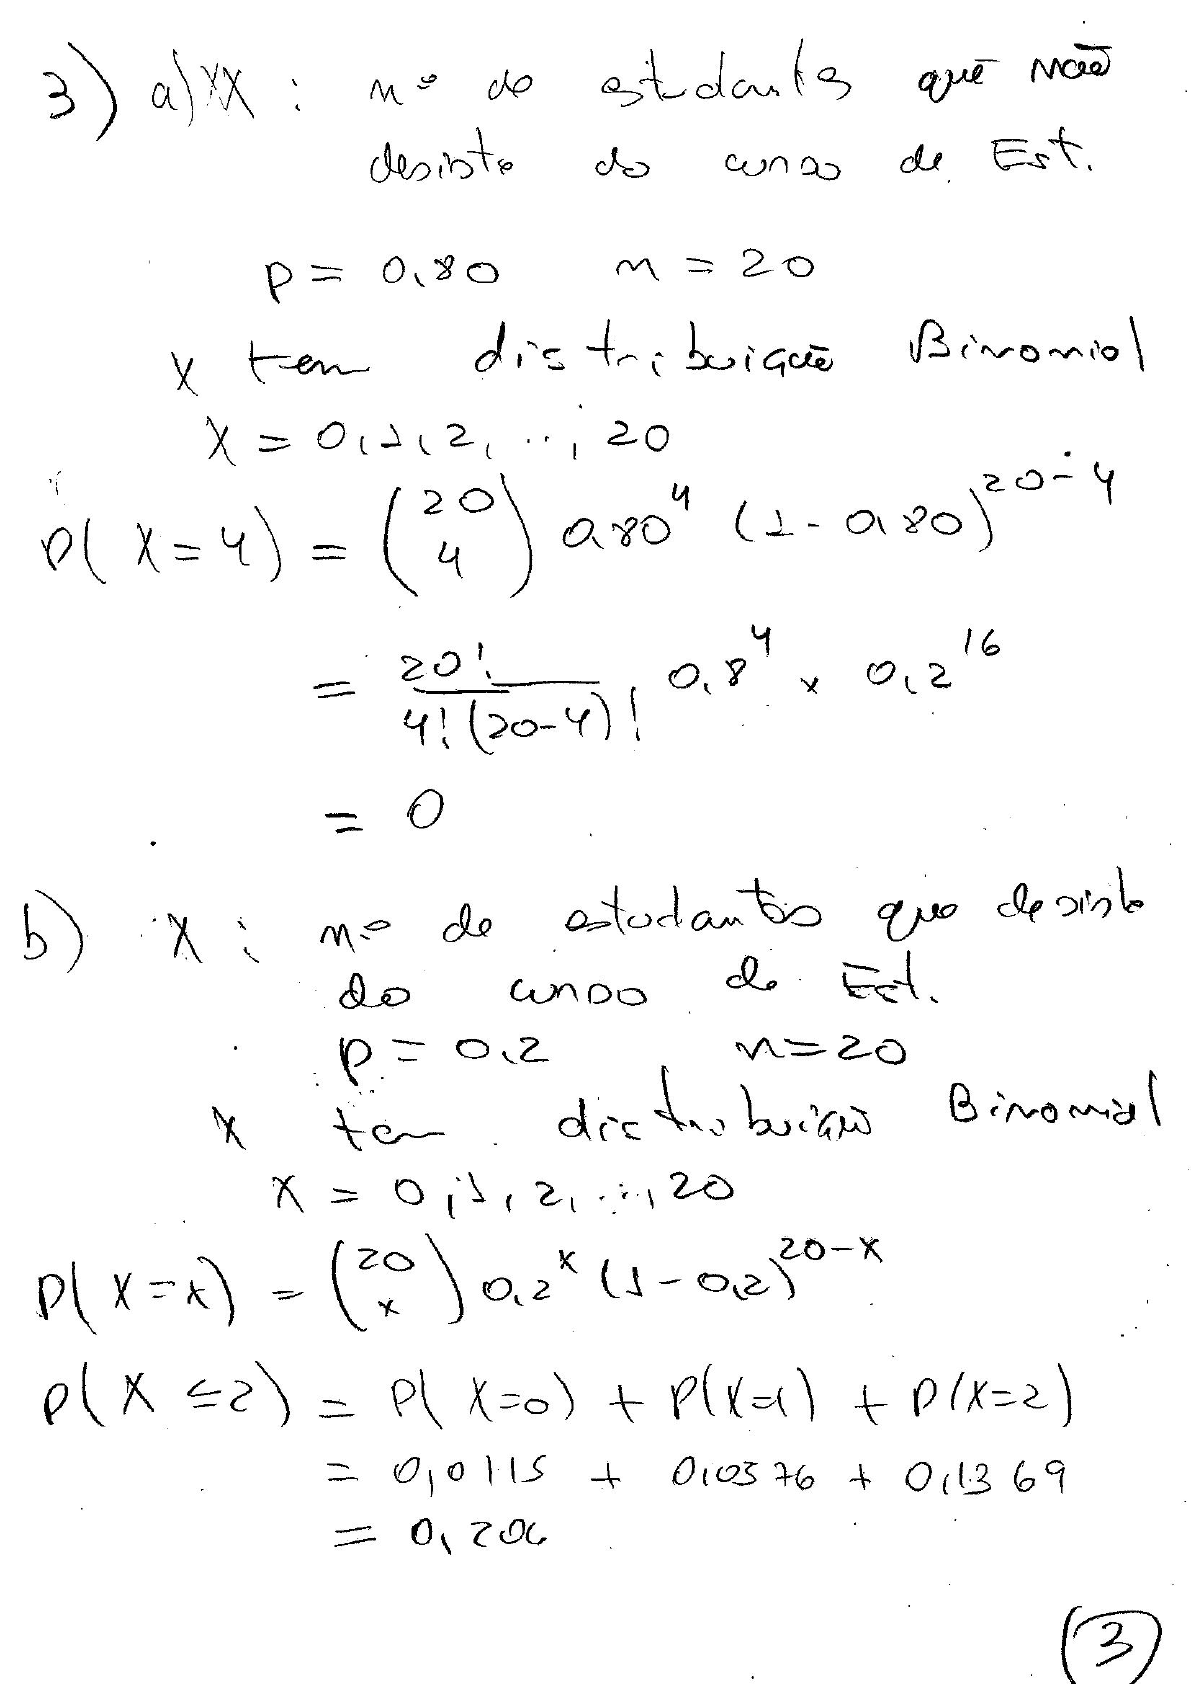 3) a) X : nº de estudantes que não
desiste do curso de Est.
p = 0,80 n = 20
X tem distribuição Binomial
X = 0,1,2, ..., 20
P( X = 4 ) = (20 4) 0,80^4 (1 - 0,80)^20-4
= 20! / 4! (20-4)! 0,8^4 x 0,2^16
= 0
b) X : nº de estudantes que desiste
do curso de Est.
p = 0,2 n = 20
X tem distribuição Binomial
X = 0,1,2, ..., 20
P( X = x ) = (20 x) 0,2^x (1 - 0,2)^20-x
P( X ≤ 2 ) = P( X=0 ) + P( X=1 ) + P( X=2 )
= 0,0115 + 0,0576 + 0,1369
= 0,206
(3)